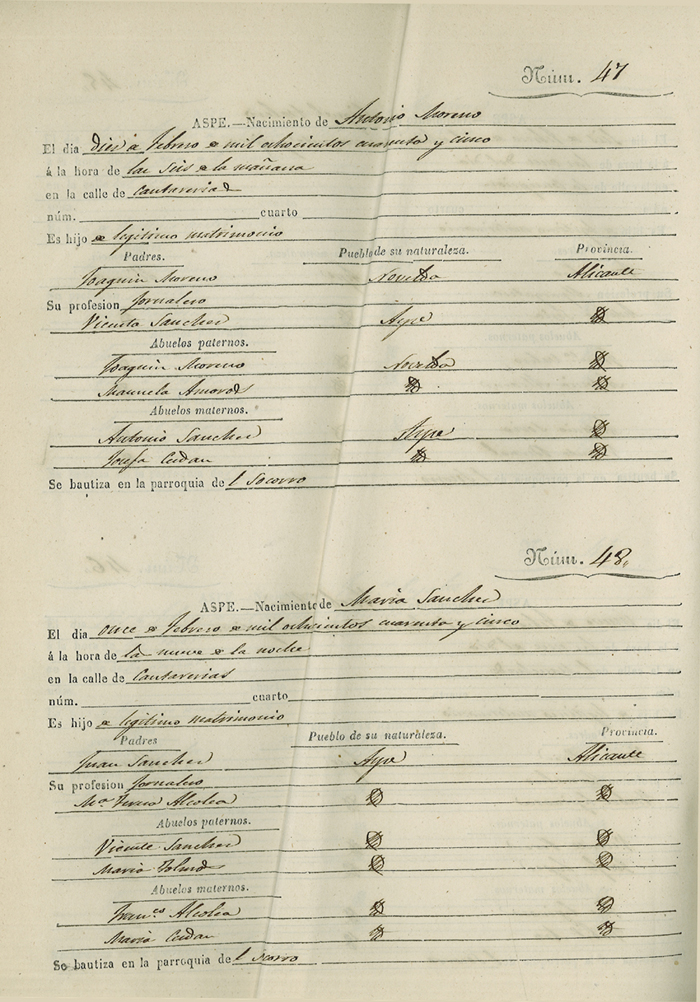 Núm. 47
ASPE.—Nacimiento de Antonio Moreno
El dia diez de febrero de mil ochocientos cuarenta y cinco
á la hora de las seis de la mañana
en la calle de Cantarerias
núm. cuarto
Es hijo de legitimo matrimonio
Padres. Pueblo de su naturaleza. Provincia.
Joaquin Moreno Novelda Alicante
Su profesion Jornalero
Vicenta Sanchez Aspe
Abuelos paternos.
Joaquin Moreno Novelda
Manuela Amoros
Abuelos maternos.
Antonio Sanchez Aspe
Josefa Cerdan
Se bautiza en la parroquia de l Socorro
Núm. 48.
ASPE.—Nacimiento de Maria Sanchez
El dia once de febrero de mil ochocientos cuarenta y cinco
á la hora de la nueve de la noche
en la calle de Cantarerias
núm. cuarto
Es hijo de legitimo matrimonio
Padres Pueblo de su naturaleza. Provincia.
Juan Sanchez Aspe Alicante
Su profesion Jornalero
Mª Alcolea
Abuelos paternos.
Vicente Sanchez
Maria
Abuelos maternos.
Franco Alcolea
Maria Cerdan
Se bautiza en la parroquia de l Socorro